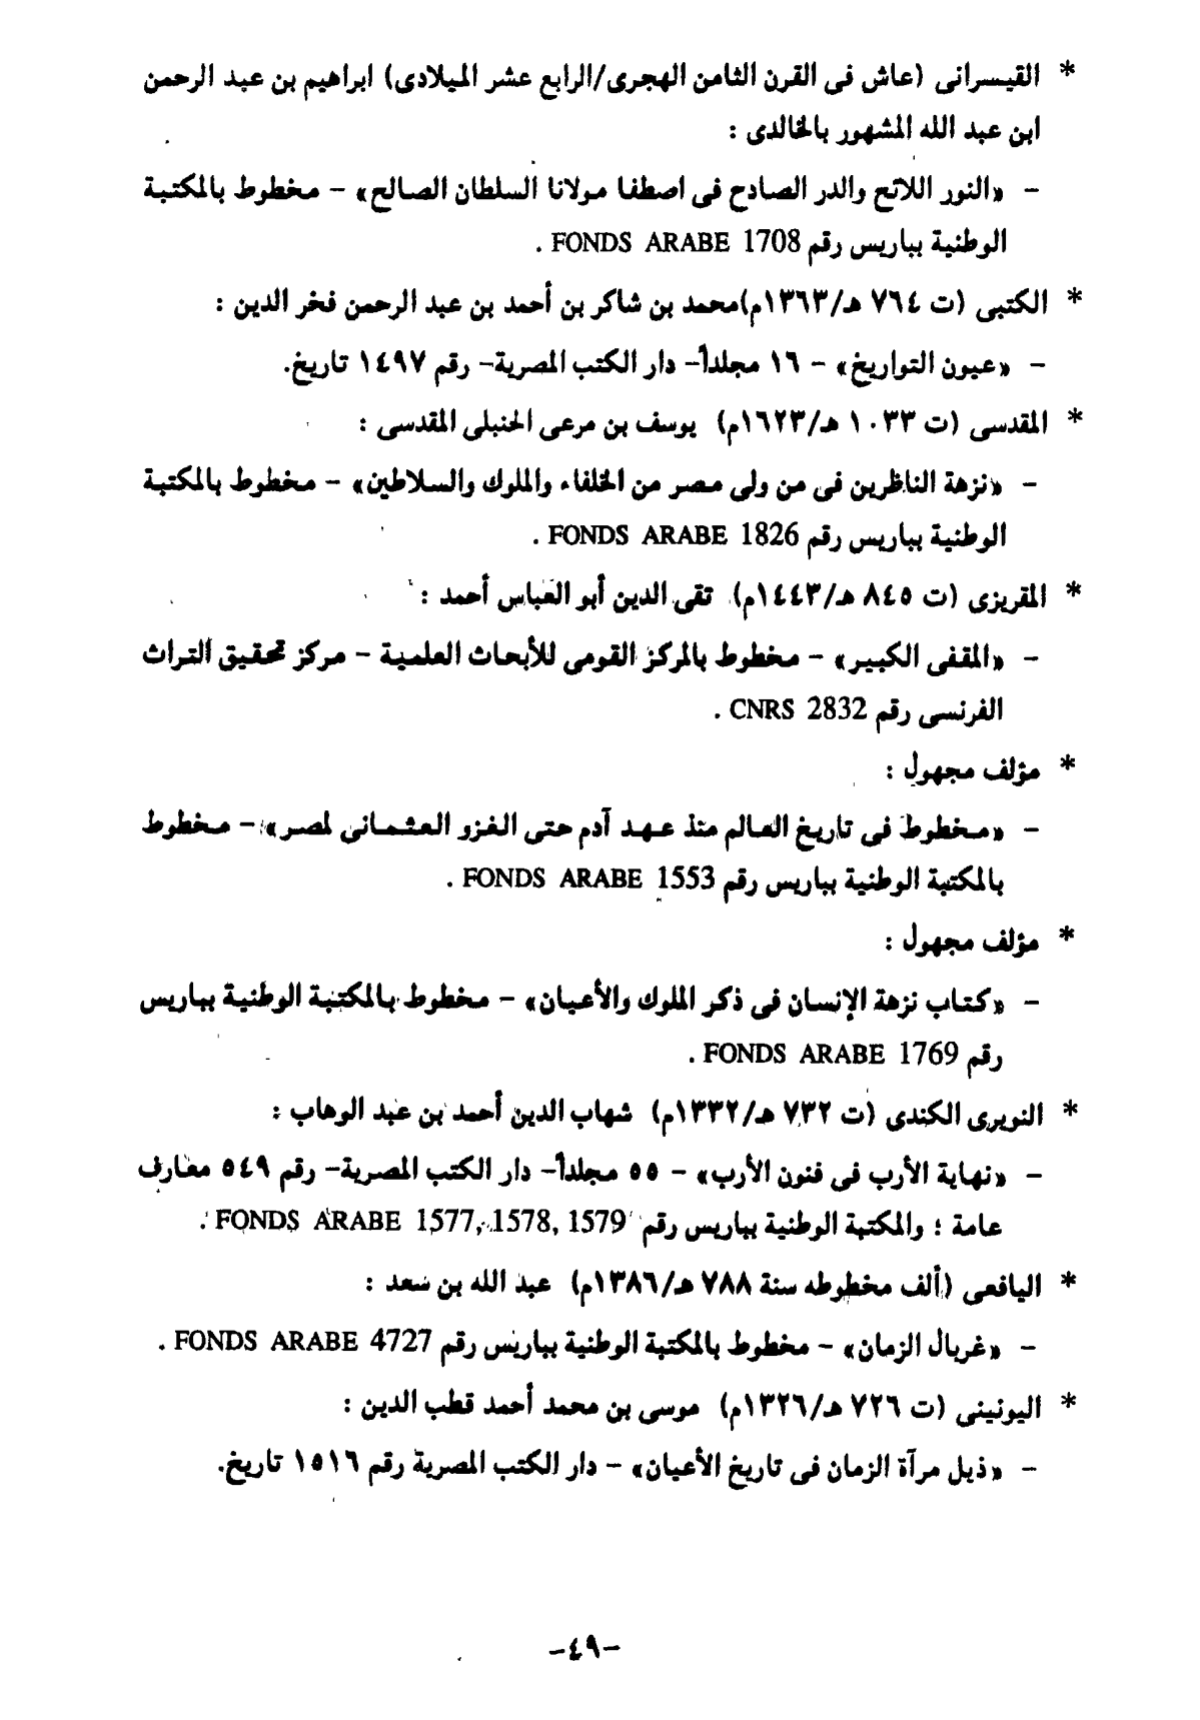 * القيسرانى (عاش فى القرن الثامن الهجرى/الرابع عشر الميلادى) ابراهيم بن عبد الرحمن
ابن عبد الله المشهور بالخالدى :
- «النور اللائح والدر الصادح فى اصطفا مولانا السلطان الصالح» - مخطوط بالمكتبة
الوطنية بباريس رقم FONDS ARABE 1708 .
* الكتبى (ت ٧٦٤ هـ/١٣٦٣م)محمد بن شاكر بن أحمد بن عبد الرحمن فخر الدين :
- «عيون التواريخ» - ١٦ مجلداً- دار الكتب المصرية- رقم ١٤٩٧ تاريخ.
* المقدسى (ت ١٠٣٣ هـ/١٦٢٣م) يوسف بن مرعى الحنبلى المقدسى :
- «نزهة الناظرين فى من ولى مصر من الخلفاء والملوك والسلاطين» - مخطوط بالمكتبة
الوطنية بباريس رقم FONDS ARABE 1826 .
* المقريزى (ت ٨٤٥ هـ/١٤٤٣م) تقى الدين أبو العباس أحمد :
- «المقفى الكبير» - مخطوط بالمركز القومى للأبحاث العلمية - مركز تحقيق التراث
الفرنسى رقم CNRS 2832 .
* مؤلف مجهول :
- «مخطوط فى تاريخ العالم منذ عهد آدم حتى الغزو العثمانى لمصر» - مخطوط
بالمكتبة الوطنية بباريس رقم FONDS ARABE 1553 .
* مؤلف مجهول :
- «كتاب نزهة الإنسان فى ذكر الملوك والأعيان» - مخطوط بالمكتبة الوطنية بباريس
رقم FONDS ARABE 1769 .
* النويرى الكندى (ت ٧٣٢ هـ/١٣٣٢م) شهاب الدين أحمد بن عبد الوهاب :
- «نهاية الأرب فى فنون الأرب» - ٥٥ مجلداً- دار الكتب المصرية- رقم ٥٤٩ معارف
عامة ؛ والمكتبة الوطنية بباريس رقم FONDS ARABE 1577, 1578, 1579 .
* اليافعى (ألف مخطوطه سنة ٧٨٨ هـ/١٣٨٦م) عبد الله بن سعد :
- «غربال الزمان» - مخطوط بالمكتبة الوطنية بباريس رقم FONDS ARABE 4727 .
* اليونينى (ت ٧٢٦ هـ/١٣٢٦م) موسى بن محمد أحمد قطب الدين :
- «ذيل مرآة الزمان فى تاريخ الأعيان» - دار الكتب المصرية رقم ١٥١٦ تاريخ.
-٤٩-